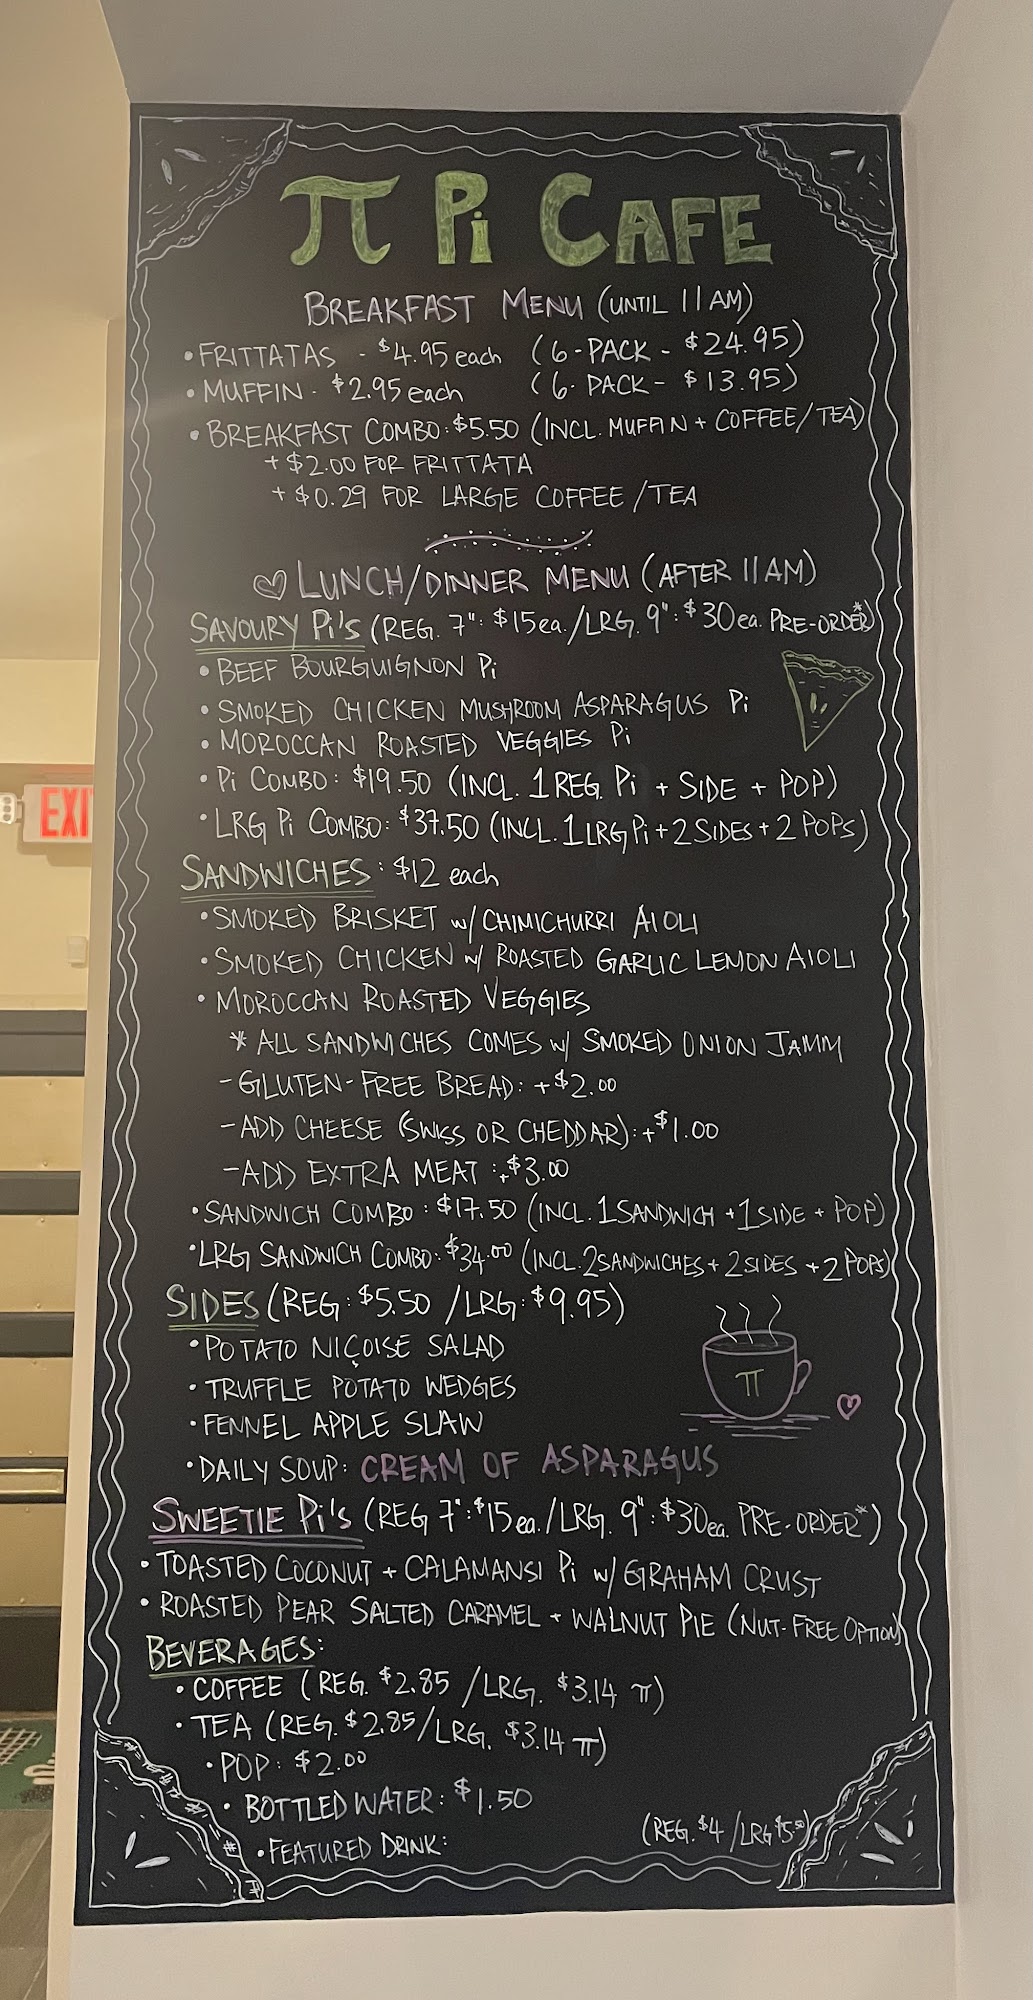 π Pi CAFE
BREAKFAST MENU (UNTIL 11AM)
• FRITTATAS - $4.95 each (6-PACK - $24.95)
• MUFFIN - $2.95 each (6-PACK - $13.95)
• BREAKFAST COMBO: $5.50 (INCL. MUFFIN + COFFEE/TEA)
+ $2.00 FOR FRITTATA
+ $0.29 FOR LARGE COFFEE/TEA
♡ LUNCH/DINNER MENU (AFTER 11AM)
SAVOURY Pi's (REG. 7": $15ea./LRG. 9": $30ea. PRE-ORDER*)
• BEEF BOURGUIGNON Pi
• SMOKED CHICKEN MUSHROOM ASPARAGUS Pi
• MOROCCAN ROASTED VEGGIES Pi
• Pi COMBO: $19.50 (INCL. 1 REG. Pi + SIDE + POP)
• LRG Pi COMBO: $37.50 (INCL. 1 LRG Pi + 2 SIDES + 2 POPS)
SANDWICHES: $12 each
• SMOKED BRISKET w/ CHIMICHURRI AIOLI
• SMOKED CHICKEN w/ ROASTED GARLIC LEMON AIOLI
• MOROCCAN ROASTED VEGGIES
* ALL SANDWICHES COMES w/ SMOKED ONION JAMM
- GLUTEN-FREE BREAD: +$2.00
- ADD CHEESE (SWISS OR CHEDDAR): +$1.00
- ADD EXTRA MEAT: +$3.00
• SANDWICH COMBO: $17.50 (INCL. 1 SANDWICH + 1 SIDE + POP)
• LRG SANDWICH COMBO: $34.00 (INCL. 2 SANDWICHES + 2 SIDES + 2 POPS)
SIDES (REG: $5.50 / LRG: $9.95)
• POTATO NIÇOISE SALAD
• TRUFFLE POTATO WEDGES
π
• FENNEL APPLE SLAW
• DAILY SOUP: CREAM OF ASPARAGUS
SWEETIE Pi's (REG 7": $15ea./LRG. 9": $30ea. PRE-ORDER*)
• TOASTED COCONUT + CALAMANSI Pi w/ GRAHAM CRUST
• ROASTED PEAR SALTED CARAMEL + WALNUT PIE (NUT-FREE OPTION)
BEVERAGES:
• COFFEE (REG. $2.85 / LRG. $3.14 π)
• TEA (REG. $2.85 / LRG. $3.14 π)
• POP: $2.00
• BOTTLED WATER: $1.50
• FEATURED DRINK: (REG. $4 / LRG $5.50)
EXI